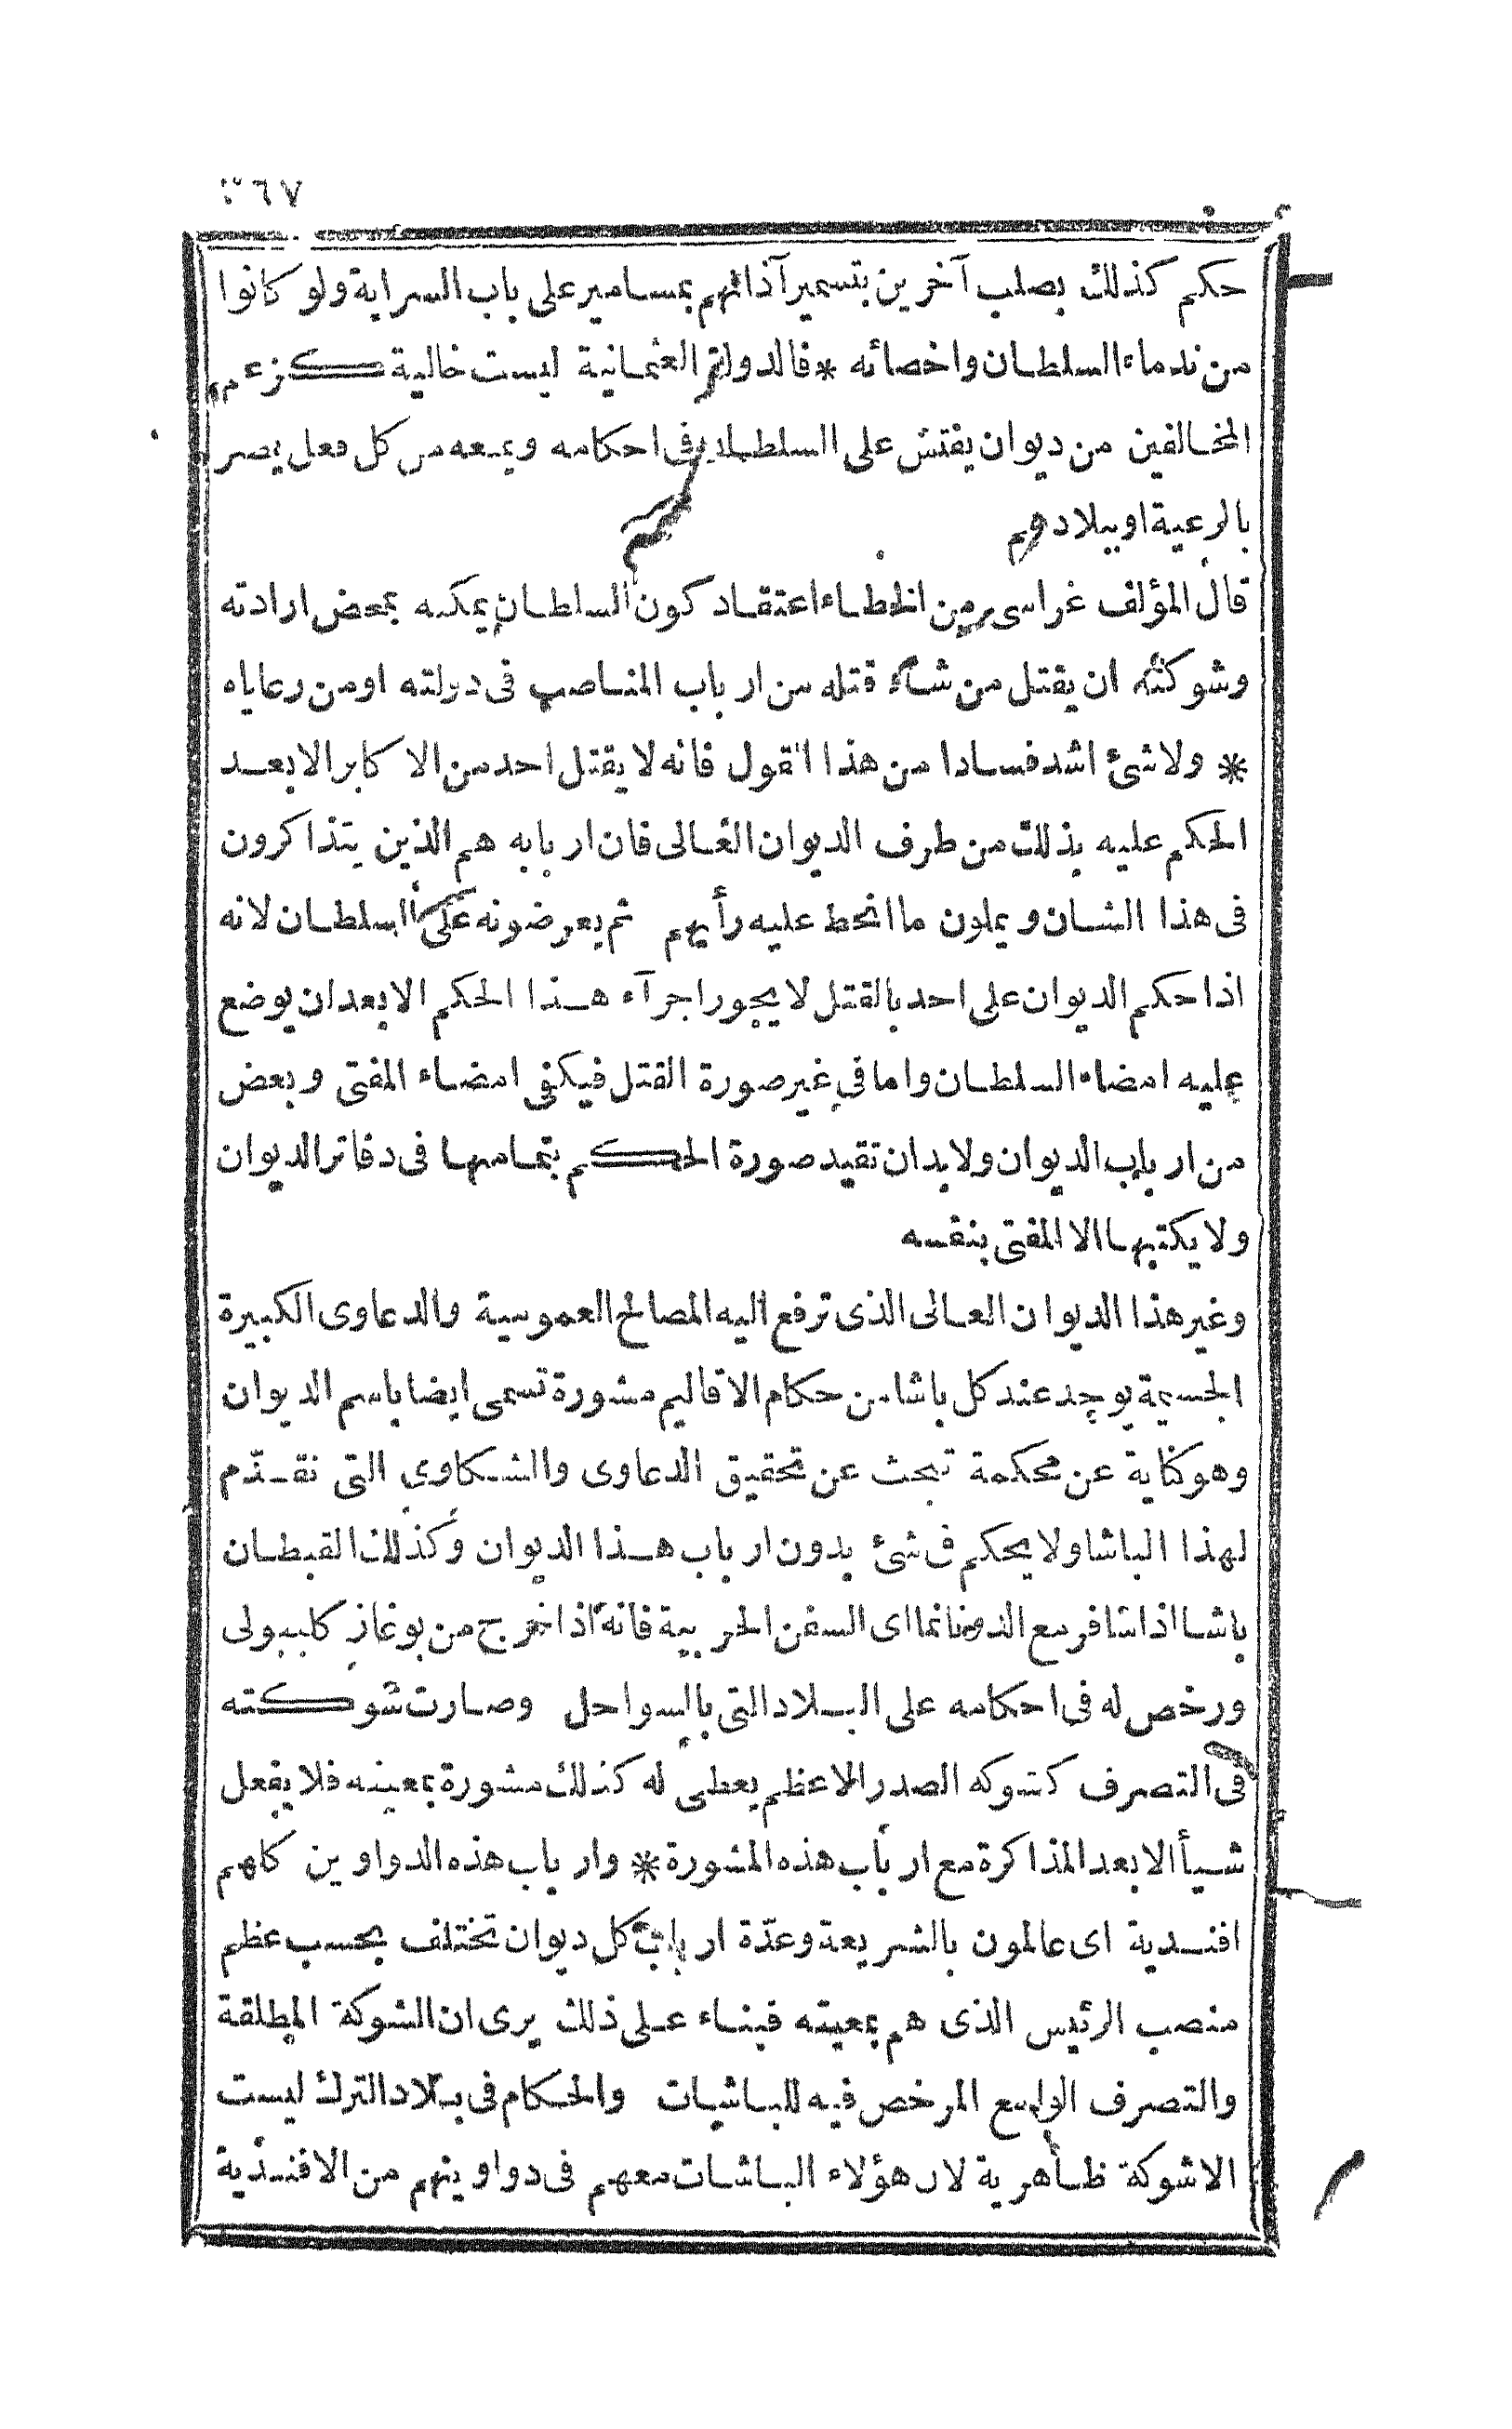 ٦٧
حكم كذلك بصلب آخرين بتسمير آذانهم بمسامير على باب السراية ولو كانوا
من ندماء السلطان واخصائه * فالدولة العثمانية ليست خالية كزعم
المخالفين من ديوان يفتش على السلطان فى احكامه ويمنعه من كل فعل يضر
بالرعية او ببلادهم
قال المؤلف غراسى من الخطاء اعتقاد كون السلطان يمكنه بمحض ارادته
وشوكته ان يقتل من شاء قتله من ارباب المناصب فى دولته او من رعاياه
* ولا شئ اشد فسادا من هذا القول فانه لا يقتل احد من الاكابر الا بعد
الحكم عليه بذلك من طرف الديوان العالى فان اربابه هم الذين يتذاكرون
فى هذا الشان ويملون ما انحط عليه رأيهم ثم يعرضونه على السلطان لانه
اذا حكم الديوان على احد بالقتل لا يجوز اجرآء هذا الحكم الا بعد ان يوضع
عليه امضاء السلطان واما فى غير صورة القتل فيكفى امضاء المفتى وبعض
من ارباب الديوان ولا بد ان تقيد صورة الحكم بتمامها فى دفاتر الديوان
ولا يكتبها الا المفتى بنفسه
وغير هذا الديوان العالى الذى ترفع اليه المصالح العمومية والدعاوى الكبيرة
الجسيمة يوجد عند كل باشا من حكام الاقاليم مشورة تسمى ايضا باسم الديوان
وهو كناية عن محكمة تبحث عن تحقيق الدعاوى والشكاوى التى تقدّم
لهذا الباشا ولا يحكم فى شئ بدون ارباب هذا الديوان وكذلك القبطان
باشا اذا سافر مع الدونانما اى السفن الحربية فانه اذا خرج من بوغاز كليبولى
ورخص له فى احكامه على البلاد التى بالسواحل وصارت شوكته
فى التصرف كشوكة الصدر الاعظم يعطى له كذلك مشورة بمعيته فلا يفعل
شيأ الا بعد المذاكرة مع ارباب هذه المشورة * وارباب هذه الدواوين كلهم
افندية اى عالمون بالشريعة وعدّة ارباب كل ديوان تختلف بحسب عظم
منصب الرئيس الذى هم بمعيته فبناء على ذلك يرى ان الشوكة المطلقة
والتصرف الواسع المرخص فيه للباشيات والحكام فى بلاد الترك ليست
الا شوكة ظاهرية لان هؤلاء الباشات معهم فى دواوينهم من الافندية